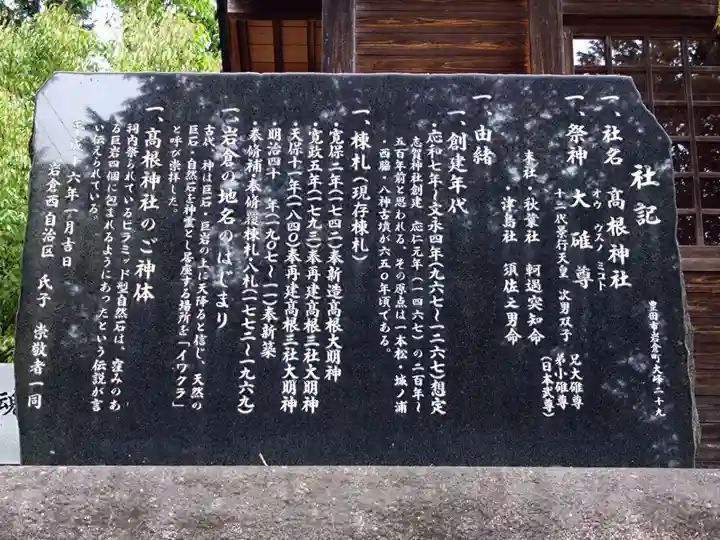 社記
豊田市岩倉町大峰二十九
一、社名 髙根神社
オウ ウスノ ミコト
一、祭神 大碓尊
十二代景行天皇 次男双子
兄大碓尊
弟小碓尊
(日本武尊)
末社・秋葉社 軻遇突知命
・津島社 須佐之男命
一、由緒
一、創建年代
・応和七年〜文永四年(九六七〜一二六七)想定
志賀神社創建 応仁元年(一四六七)の二百年〜
五百年前と思われる、その原点は一本松・城ノ浦
・西脇 八神古墳が六五〇年頃である。
一、棟札(現存棟札)
・寛保二年(一七四二)奉新造髙根大明神
・寛政五年(一七九三)奉再建髙根三社大明神
・天保十一年(一八四〇)奉再建髙根三社大明神
・明治四十 年(一九〇七〜一一)奉新築
・奉修補・奉修覆棟札八札(一七七二〜一九六九)
一、岩倉の地名のはじまり
古代、神は巨石・巨岩の上に天降ると信じ、天然の
巨石・自然石を神霊として居座する場所を「イワクラ」
と呼び崇拝した。
一、髙根神社のご神体
祠内祭られているピラミッド型自然石は、窪みのあ
る巨岩四個に包まれるようにあったという伝説が言
い伝えられている。
十六年一月吉日
岩倉西自治区 氏子 崇敬者一同
魂